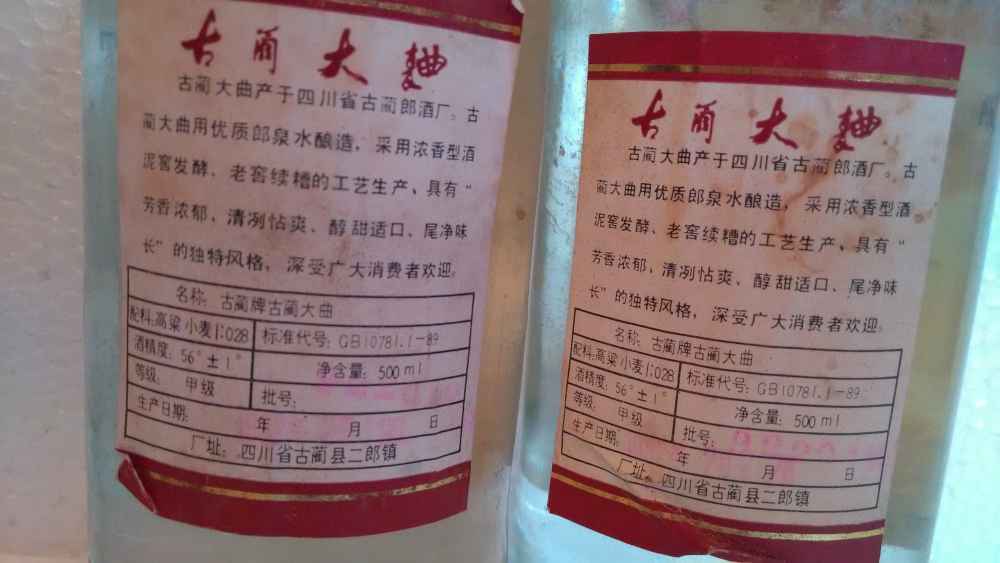 古蔺大麯
古蔺大曲产于四川省古蔺郎酒厂。古
蔺大曲用优质郎泉水酿造，采用浓香型酒
泥窖发酵、老窖续糟的工艺生产、具有“
芳香浓郁、清冽怗爽、醇甜适口、尾净味
长”的独特风格，深受广大消费者欢迎。
名称: 古蔺牌古蔺大曲
配料:高粱 小麦1:028 标准代号: GB10781.1-89
酒精度: 56°±1° 净含量: 500ml
等级: 甲级 批号:
生产日期: 年 月 日
厂址: 四川省古蔺县二郎镇
古蔺大麯
古蔺大曲产于四川省古蔺郎酒厂。古
蔺大曲用优质郎泉水酿造，采用浓香型酒
泥窖发酵、老窖续糟的工艺生产、具有“
芳香浓郁、清冽怗爽、醇甜适口、尾净味
长”的独特风格，深受广大消费者欢迎。
名称: 古蔺牌古蔺大曲
配料:高粱 小麦1:028 标准代号: GB10781.1-89
酒精度: 56°±1° 净含量: 500ml
等级: 甲级 批号:
生产日期: 年 月 日
厂址: 四川省古蔺县二郎镇